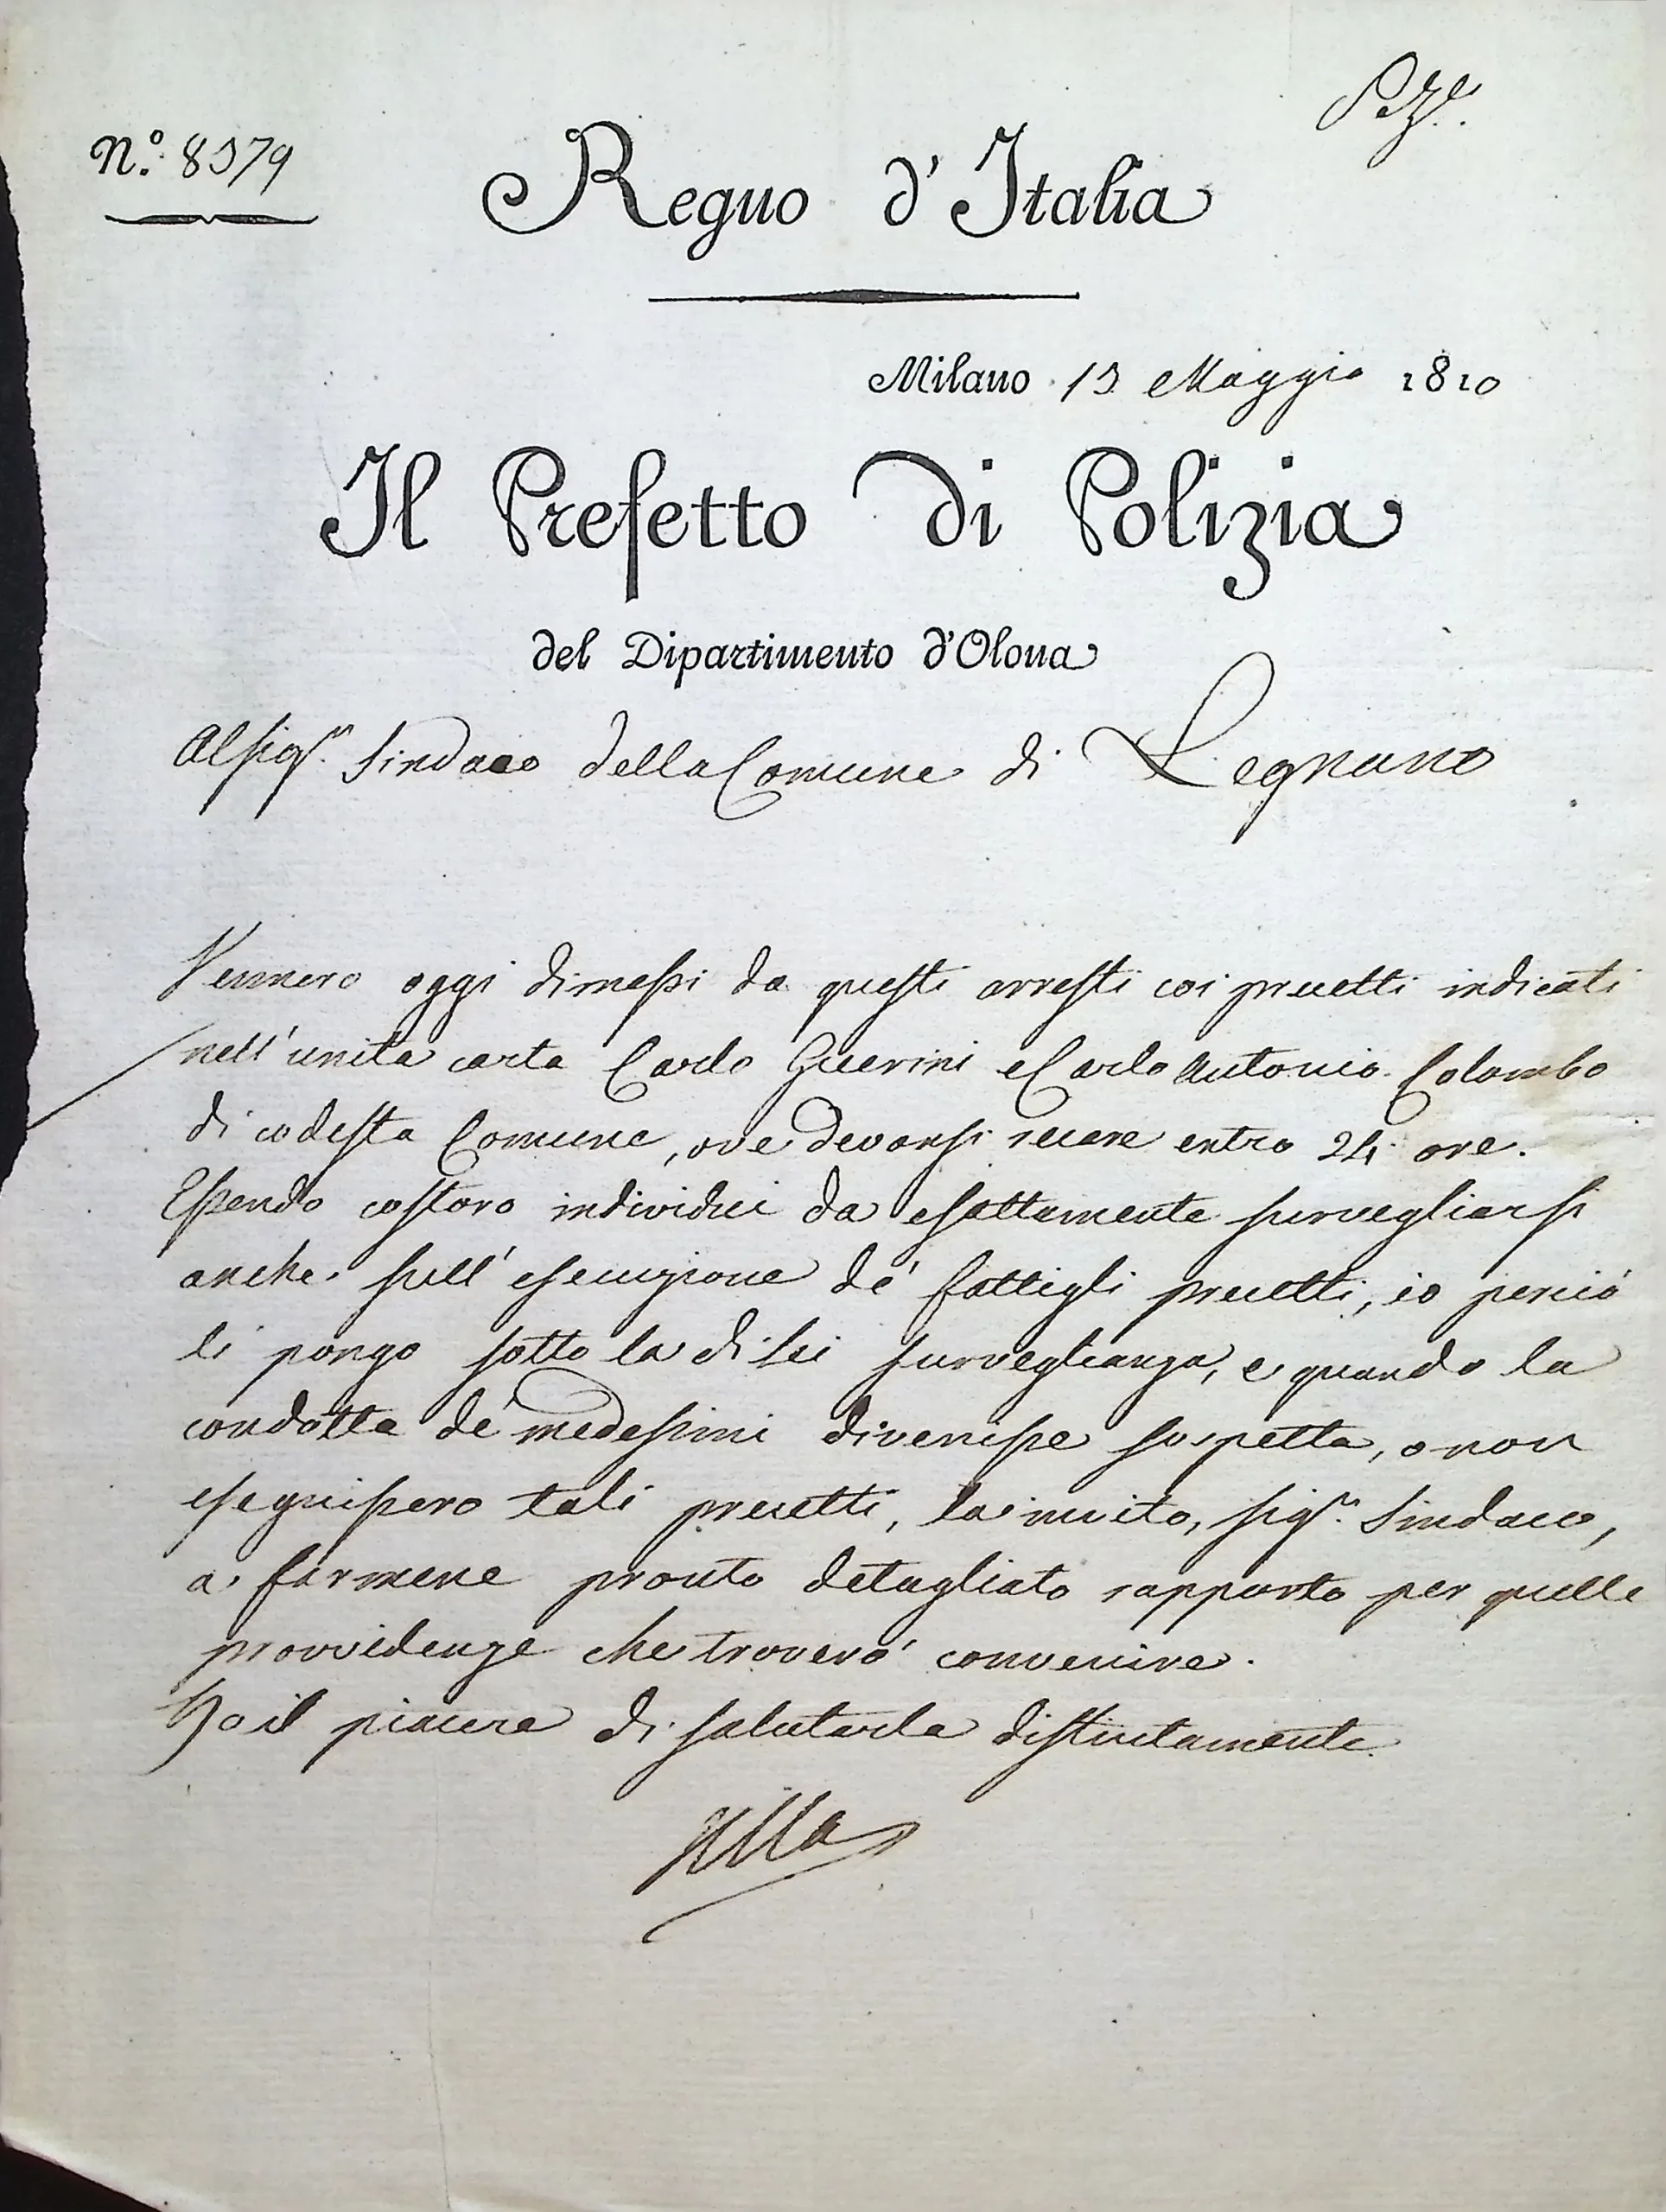 N.º 8379
Regno d'Italia
Milano 13 Maggio 1810
Il Prefetto di Polizia
del Dipartimento d'Olona
Al Sigr. Sindaco della Comune di Legnano
Vennero oggi dimessi da questi arresti coi precetti indicati
nell'unita carta Carlo Guerini e Carlo Antonio Colombo
di codesta Comune, ove devonsi recare entro 24 ore.
Essendo costoro individui da esattamente survegliarsi
anche sull'esecuzione de' fattigli precetti, io perciò
li pongo sotto la di lei surveglianza, e quando la
condotta de' medesimi divenisse sospetta, o non
eseguissero tali precetti, la invito, Sigr. Sindaco,
a farmene pronto detagliato rapporto per quelle
provvidenze che troverò convenire.
Ho il piacere di salutarla distintamente.
Villa